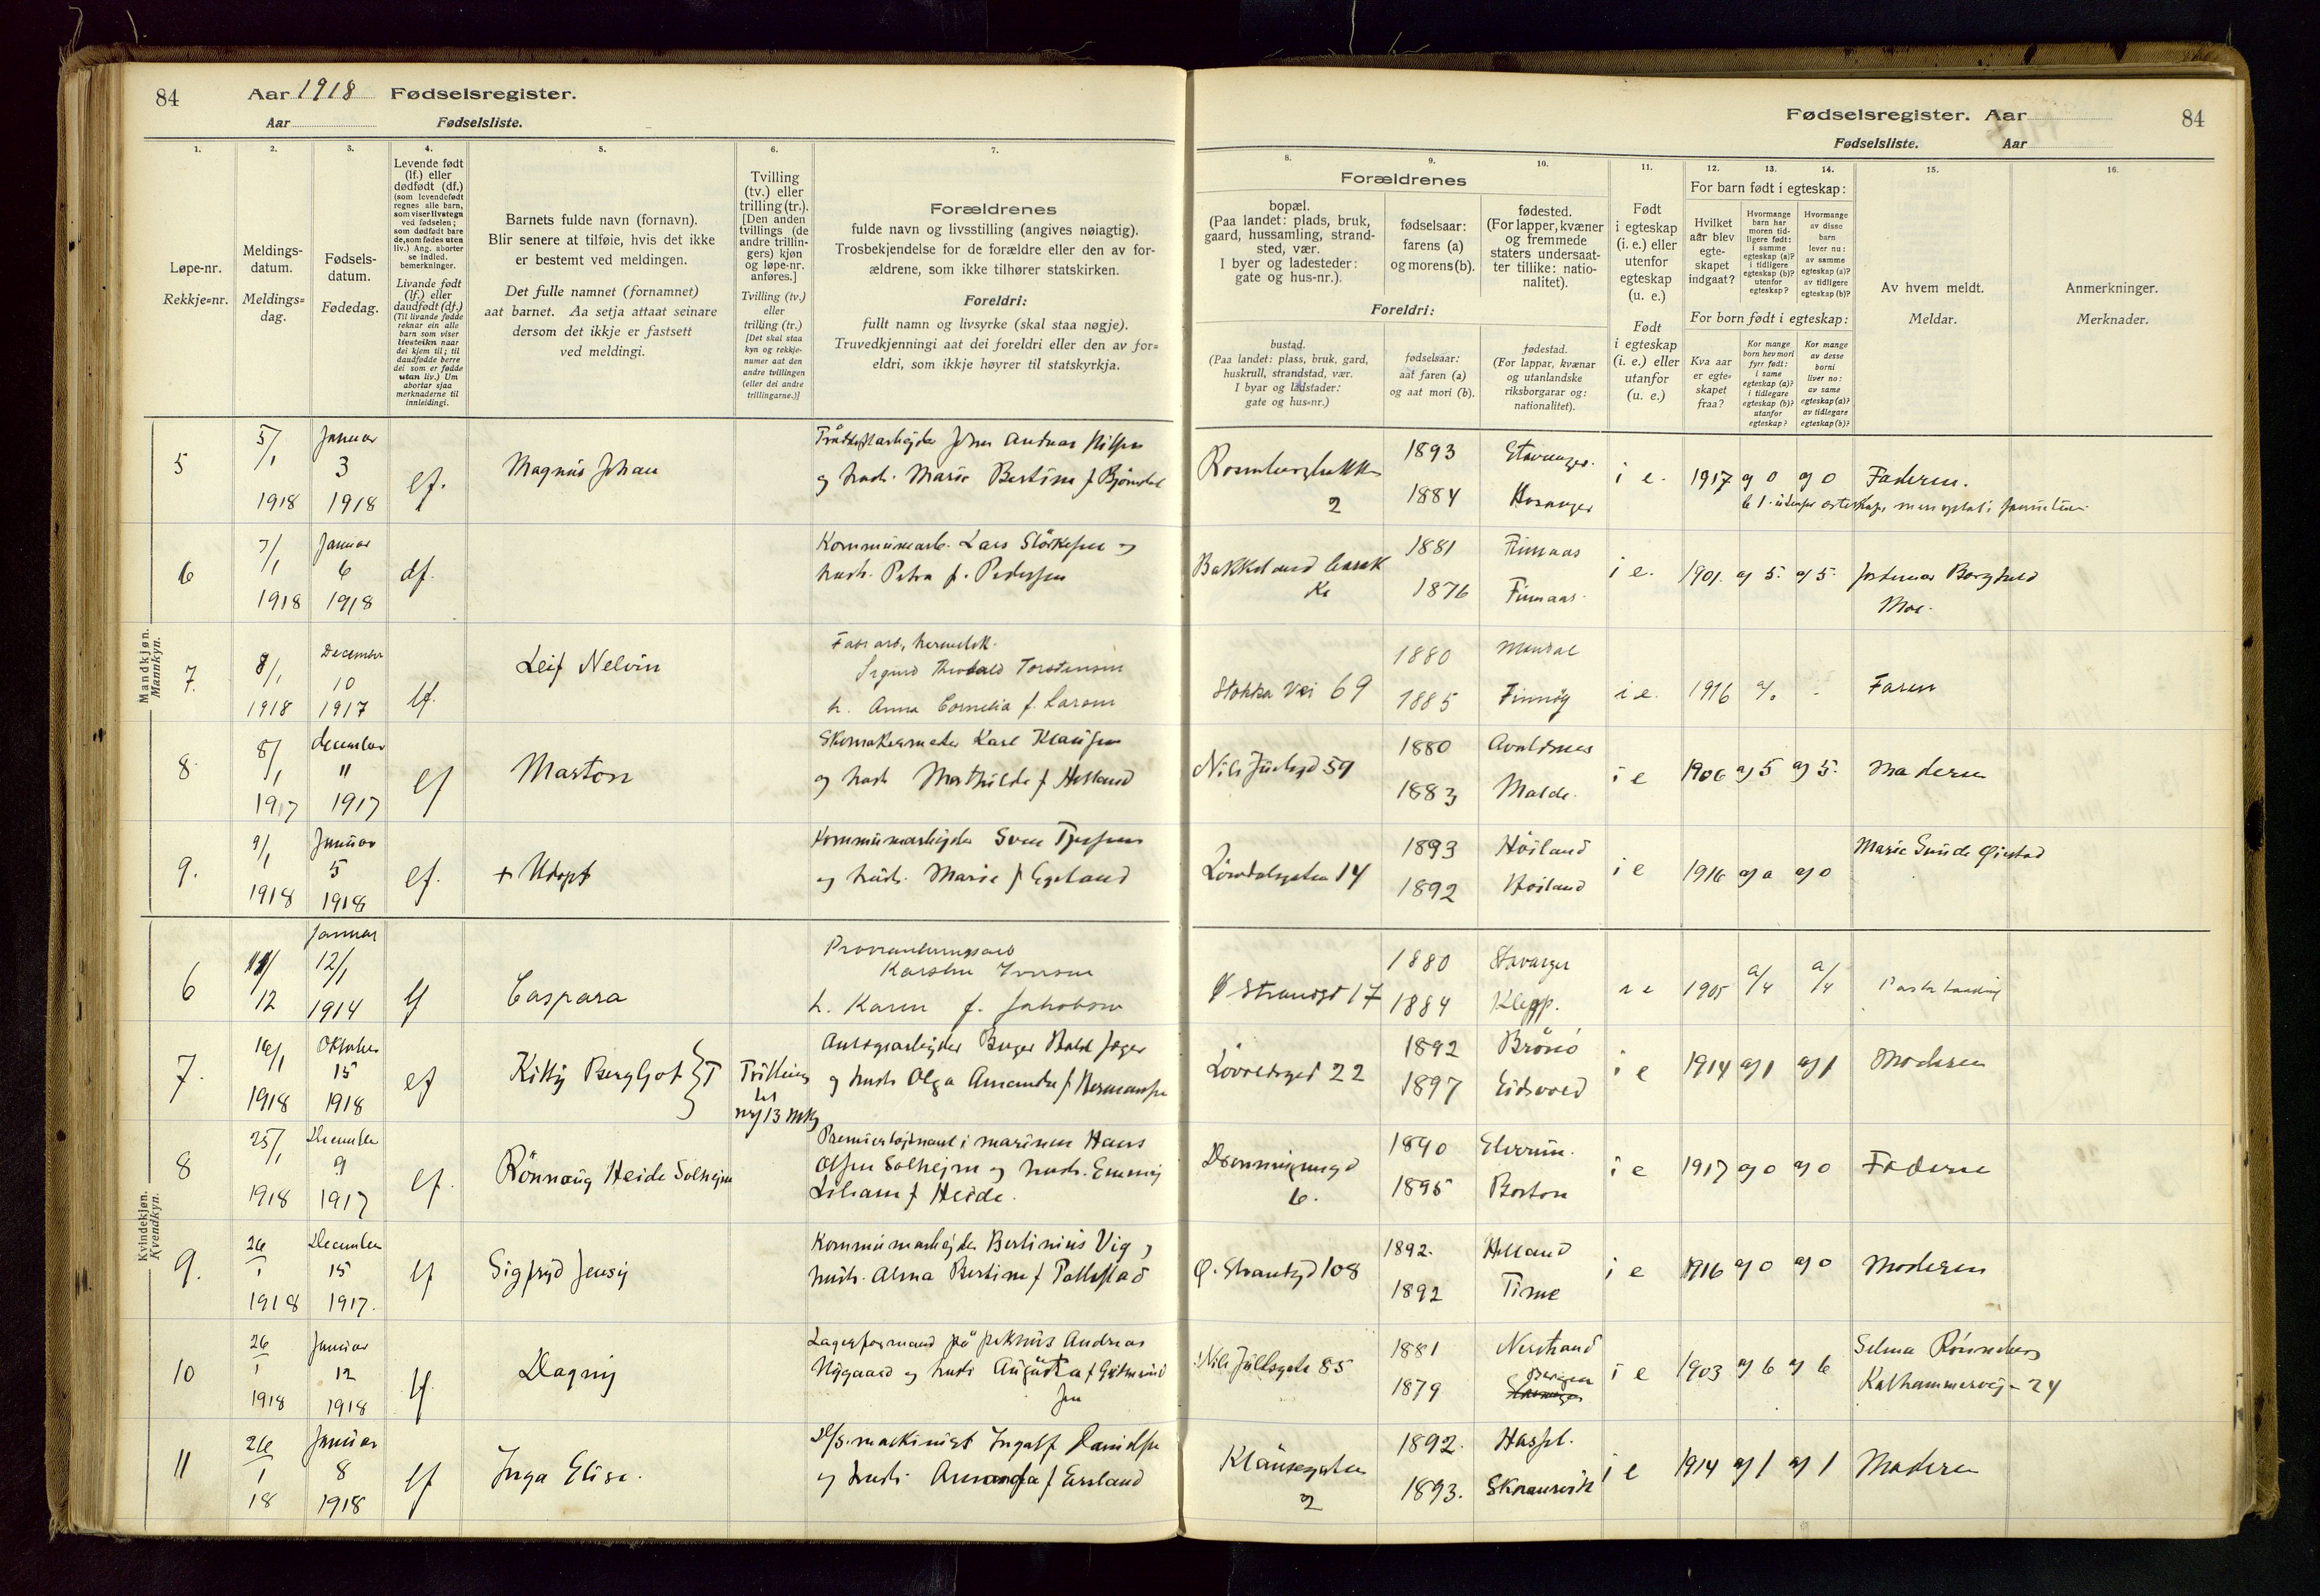 84
Aar 1918 Fødselsregister.
Aar Fødselsliste.
1.
2.
3.
4.
5.
6.
7.
Løpe-nr.
Rekkje-nr.
Meldings-
datum.
Meldings-
dag.
Fødsels-
datum.
Fødedag.
Levende født
(lf.) eller
dødfødt (df.)
(som levendefødt
regnes alle barn,
som viser livstegn
ved fødselen;
som dødfødt bare
de, som fødes uten
liv.) Ang. aborter
se indled.
bemerkninger.
Livande født
(lf.) eller
daudfødt (df.)
(Til livande fødde
reknar ein alle
barn som viser
livsteikn naar
dei kjem til; til
daudfødde berre
dei som er fødde
utan liv.) Um
abortar sjaa
merknaderne til
innleidingi.
Barnets fulde navn (fornavn).
Blir senere at tilføie, hvis det ikke
er bestemt ved meldingen.
Det fulle namnet (fornamnet)
aat barnet. Aa setja attaat seinare
dersom det ikkje er fastsett
ved meldingi.
Tvilling
(tv.) eller
trilling (tr.).
[Den anden
tvillings (de
andre trillin-
gers) kjøn
og løpe-nr.
anføres.]
Tvilling (tv.)
eller
trilling (tr.)
[Det skal staa
kyn og rekkje-
numer aat den
andre tvillingen
(eller dei andre
trillingarne.)]
Forældrenes
fulde navn og livsstilling (angives nøiagtig).
Trosbekjendelse for de forældre eller den av for-
ældrene, som ikke tilhører statskirken.
Foreldri:
fullt namn og livsyrke (skal staa nøgje).
Truvedkjenningi aat dei foreldri eller den av for-
eldri, som ikkje høyrer til statskyrkja.
Mandkjøn.
Mannkyn.
5
5/1 1918
Januar 3 1918
lf.
Magnus Johan
Johan Andreas Nilsen
og hustr. Marie Bertine f
6
7/1 1918
Januar 6 1918
df.
Kommunearb. Lars Størkesen og
hustr. Petra f. Pedersen
7.
8/1 1918
December 10 1917
lf.
Leif Nelvin
Fabr arb, hermetik.
Sigurd Theobald Torstensen
h. Anna Cornelia f. Larsen
8
8/1 1917
december 11 1917
lf
Marton
Skomakermester Karl Klausen
og hustr Mathilde f Helland
9.
9/1 1918
Januar 5 1918
lf.
+ Udøpt
Kommunearbejder Sven Tjersen
og hustr. Marie f Egeland
Kvindekjøn.
Kvendkyn.
6
11/12
Januar 12/1 1914
lf
Caspara
Provianteringsarb
Karsten Iversen
h. Karen f. Jakobsen
7.
16/1 1918
Oktober 15 1918
lf
Kitty Bergljot } T
Tvilling
nr 13 mk
og hustr Olga Amanda f Hermansen
8
25/1 1918
December 9 1917
lf.
Rönnaug Heide Solhejm
Premierløjtnant i marinen Hans
Olsen Solhejm og hustr. Emmy
Lilian f Heide.
9.
26/1 1918
December 15 1917.
lf
Sigfryd Jensy
Kommunearbejder Bertinius Vig og
hustr. Alma Bertine f Pollestad
10
26/1 1918
Januar 12 1918
lf
Dagny
Lagerformand på pakhus Andreas
Nygaard og hustr Augusta f Gudmund
sen
11
26/1 18
Januar 8 1918
lf
Inga Elise.
D/S. maskinist Ingolf Danielsen
og hustr. Amanda f Ersland
Fødselsregister. Aar 84
Fødselsliste. Aar
8.
9.
10.
11.
12.
13.
14.
15.
16.
Forældrenes
bopæl.
(Paa landet: plads, bruk,
gaard, hussamling, strand-
sted, vær.
I byer og ladesteder:
gate og hus-nr.).
fødselsaar:
farens (a)
og morens (b).
fødested.
(For lapper, kvæner
og fremmede
staters undersaat-
ter tillike: natio-
nalitet).
Foreldri:
bustad.
(Paa landet: plass, bruk, gard,
huskrull, strandstad, vær.
I byar og ladstader:
gate og hus-nr.)
fødselsaar:
aat faren (a)
og aat mori (b).
fødestad.
(For lappar, kvænar
og utanlandske
riksborgarar og:
nationalitet).
Født
i egteskap
(i. e.) eller
utenfor
egteskap
(u. e.)
Født
i egteskap
(i. e.) eller
utanfor
(u. e.)
For barn født i egteskap:
Hvilket
aar blev
egte-
skapet
indgaat?
Hvormange
barn har
moren tid-
ligere født:
i samme
egteskap (a)?
i tidligere
egteskap (b)?
utenfor
egteskap?
Hvormange
av disse
barn
lever nu:
av samme
egteskap (a)?
av tidligere
egteskap (b)?
For born født i egteskap:
Kva aar
er egte-
skapet
fraa?
Kor mange
born hev mori
fyrr født:
i same
egteskap (a)?
i tidlegare
egteskap (b)?
utanfor
egteskap?
Kor mange
av desse
borni
liver no:
av same
egteskap (a)?
av tidlegare
egteskap (b)?
Av hvem meldt.
Meldar.
Anmerkninger.
Merknader.
Rosenbergbakken 2
1893 Stavanger.
1884 Hosanger
i e. 1917 a) 0 a) 0 Faderen.
b 1. utenfor
Bakkeland
1881 Finnaas
1876 Finnaas.
i e. 1901. a) 5. a) 5. Jordemor Borghild
Moe.
Stokka Vei 69
1880 Mandal
1885 Finnøy
i e. 1916 a/0 - Faren
Nils Juelsgd 59
1880 Avaldsnes
1883 Malde.
i e 1906 a) 5 a) 5. Moderen
Lövdalsgaten 14
1893 Höiland
1892 Höiland
i e 1916 a) 0 a) 0
Marie Sunde Øiestad
Ø Strandgt 17
1880 Stavanger
1884 Klepp.
i e 1905 a/4 a/4
22
1892 Brönö
1897 Eidsvold
i e 1914 a) 1 a) 1 Moderen
Dronningensgd 6.
1890 Elverum.
1895 Boston
i e 1917 a) 0 a) 0 Faderen
Ø. Strandgd 108
1892. Helland
1892 Time
i e 1916 a) 0 a) 0 Moderen
Nils Juelsgate 85
1881 Nerstrand
1879 Bergen
i e 1903 a) 6 a) 6 Selma Rönneberg
Kalhammervej - 24
Klausegaten 2
1892. Hasfel.
1893. Skonevik
i e 1914 a) 1 a) 1 Moderen